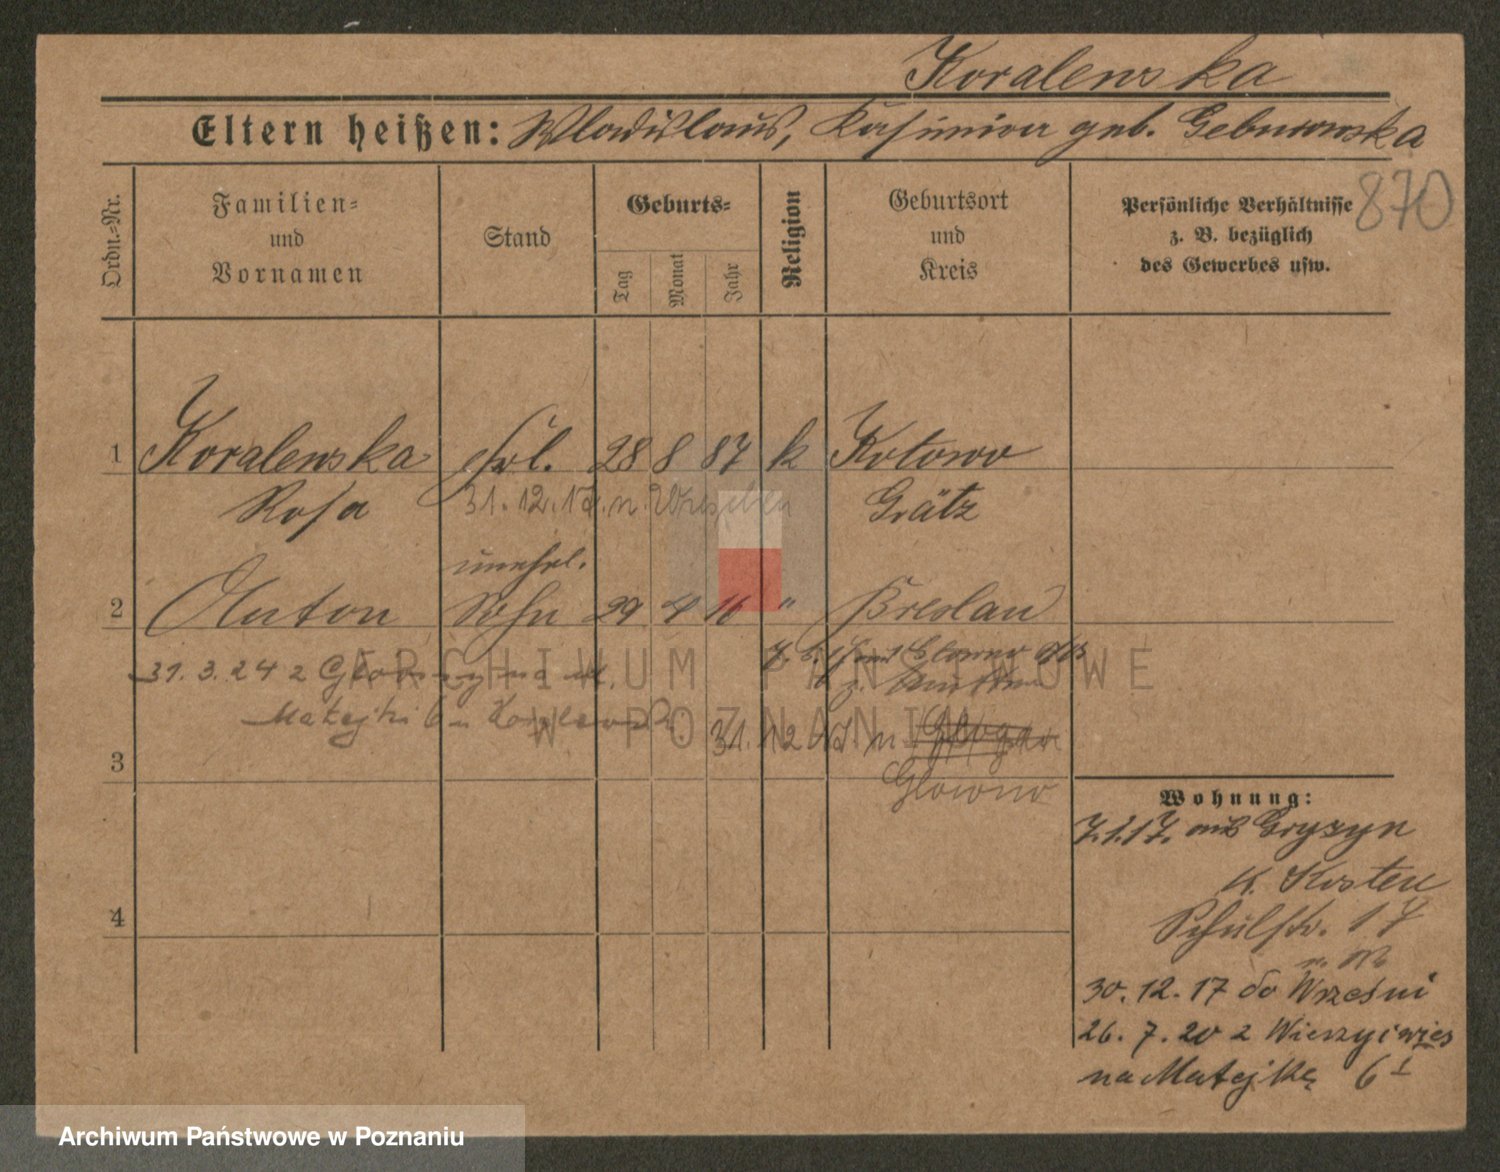 Koralewska
Eltern heißen: Wladislaus, Kasimira geb. Geburowska
870
Ordn.-Nr.
Familien-
und
Vornamen
Stand
Geburts-
Tag
Monat
Jahr
Religion
Geburtsort
und
Kreis
Persönliche Verhältnisse
z. B. bezüglich
des Gewerbes usw.
1 Koralewska Frl. 28 8 87 k Kotowo
Rosa Grätz
31.12.17. n. Wreschen
unehel.
2 Anton Sohn 29 4 16 " Breslau
31.3.24 z
Matejki 6
31.12 17 n
Glowno
3
4
Wohnung:
7.1.17. aus Gryzyn
K. Kosten
Schulstr. 17
30.12.17 do Wrześni
26.7.20 z
na Matejkę 6 I
ARCHIWUM PAŃSTWOWE
W POZNANIU
Archiwum Państwowe w Poznaniu